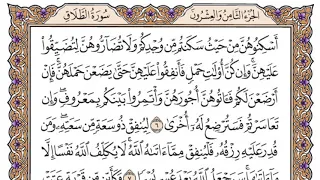 سُورَةُ الطَّلَاقِ
الجُزْءُ الثَّامِنُ وَالعِشْرُونَ
أَسْكِنُوهُنَّ مِنْ حَيْثُ سَكَنتُم مِّن وُجْدِكُمْ وَلَا تُضَآرُّوهُنَّ لِتُضَيِّقُوا۟
عَلَيْهِنَّ وَإِن كُنَّ أُو۟لَٰتِ حَمْلٍ فَأَنفِقُوا۟ عَلَيْهِنَّ حَتَّىٰ يَضَعْنَ حَمْلَهُنَّ فَإِنْ
أَرْضَعْنَ لَكُمْ فَـَٔاتُوهُنَّ أُجُورَهُنَّ وَأْتَمِرُوا۟ بَيْنَكُم بِمَعْرُوفٍ وَإِن
تَعَاسَرْتُمْ فَسَتُرْضِعُ لَهُۥٓ أُخْرَىٰ ٦ لِيُنفِقْ ذُو سَعَةٍ مِّن سَعَتِهِۦ وَمَن
قُدِرَ عَلَيْهِ رِزْقُهُۥ فَلْيُنفِقْ مِمَّآ ءَاتَىٰهُ ٱللَّهُ لَا يُكَلِّفُ ٱللَّهُ نَفْسًا إِلَّا